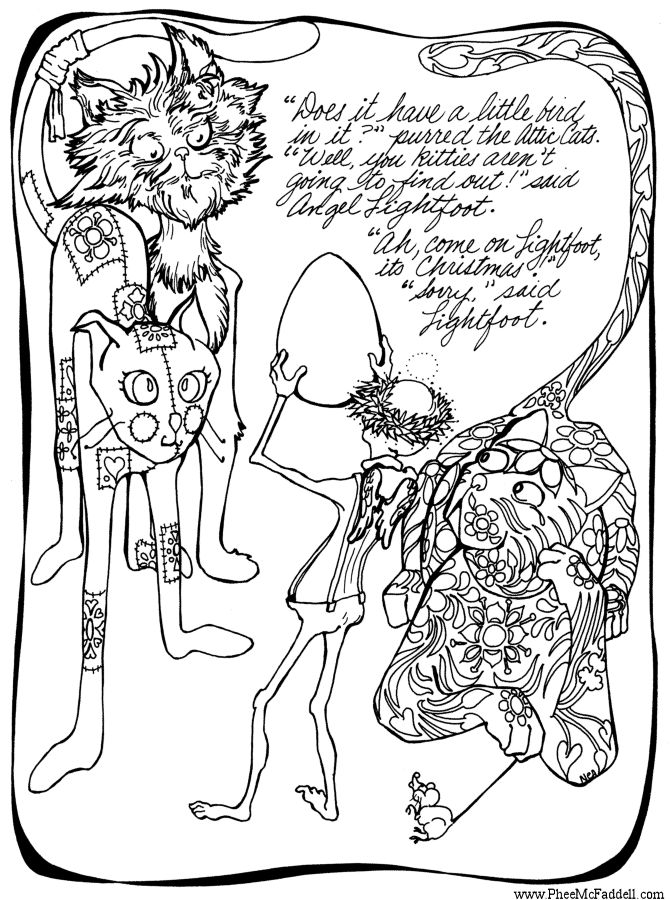 “Does it have a little bird
in it?” purred the Attic Cats.
“Well, you kitties aren't
going to find out!” said
Angel Lightfoot.
“Ah, come on Lightfoot,
its Christmas!”
“Sorry,” said
Lightfoot.
Neo
www.PheeMcFaddell.com